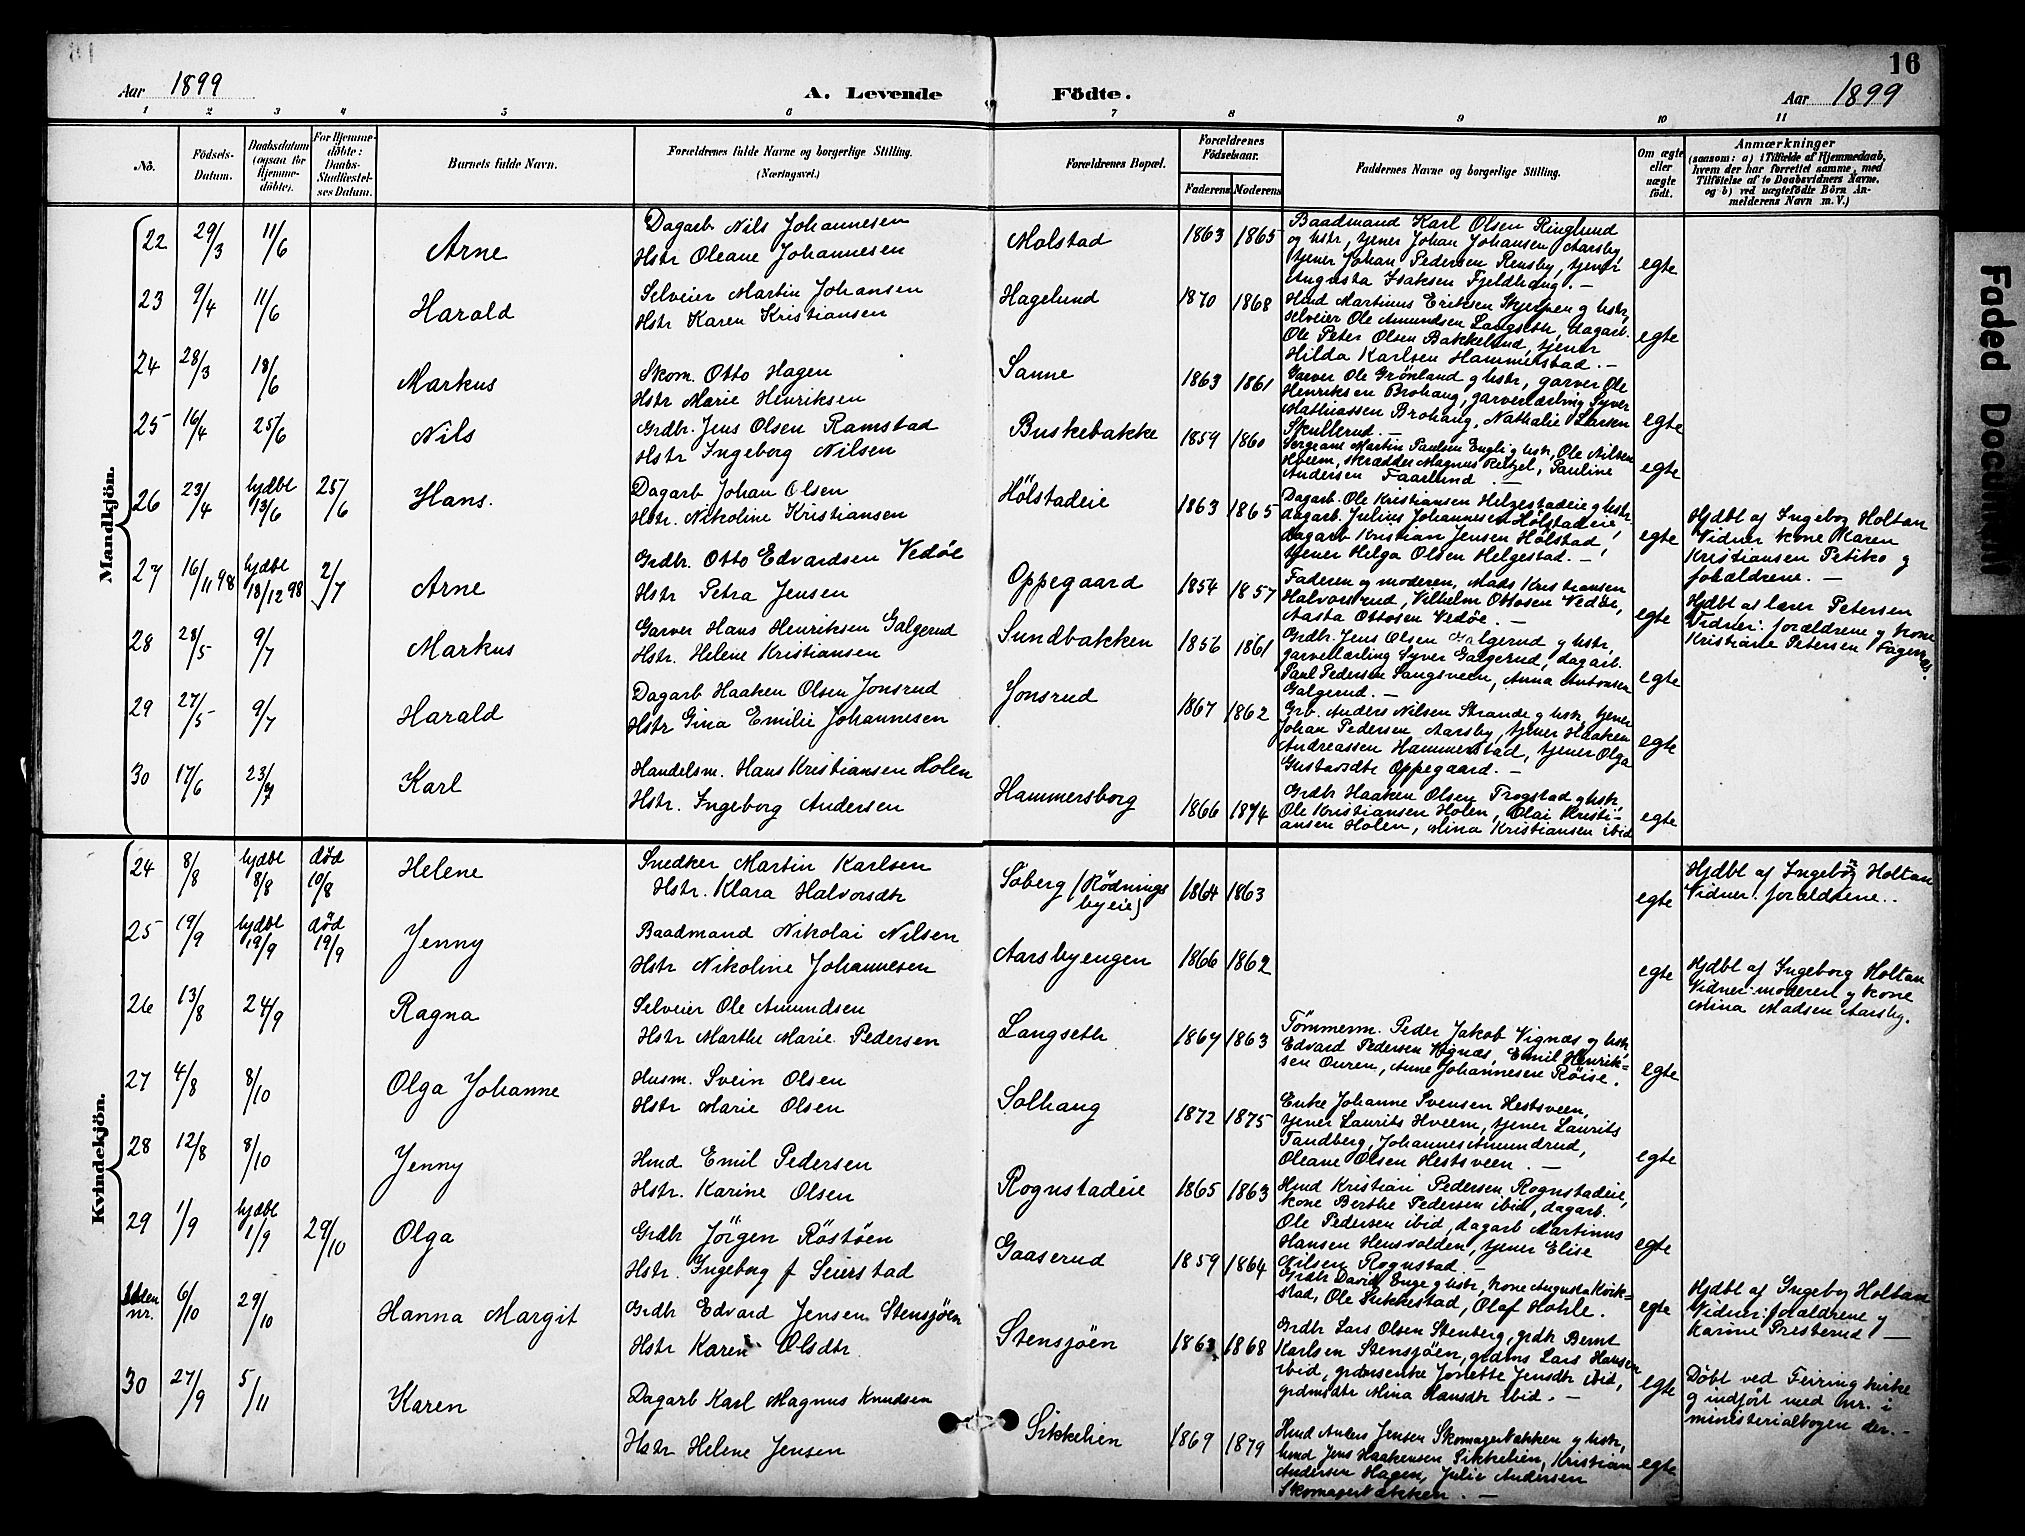 16
Aar 1899
A. Levende Födte.
Aar 1899
1 2 3 4 5 6 7 8 9 10 11
No.
Födsels-Datum.
Daabsdatum (ogsaa for Hjemme-döbte).
For Hjemme-döbte: Daabs-Stadfæstel-ses Datum.
Barnets fulde Navn.
Forældrenes fulde Navne og borgerlige Stilling.
(Næringsvei.)
Forældrenes Bopæl.
Forældrenes Födselsaar.
Faderens Moderens
Faddernes Navne og borgerlige Stilling.
Om ægte eller uægte födt.
Anmærkninger
(saasom: a) i Tilfælde af Hjemmedaab,
hvem der har forrettet samme, med
Tilföielse af to Daabsvidners Navne,
og b) ved uægtefödte Börn An-
melderens Navn m. V.)
Mandkjön.
22 29/3 11/6 Arne
Dagarb Nils Johannesen
Hstr Oleane Johannesen
Molstad 1863 1865
Baadmand Karl Olsen Ringlund
og hstr, tjener Johan Johansen Aarsby,
tjener Johan Pedersen Rensby, tjener
Augusta Isaksen Fjeldhaug. —
egte
23 9/4 11/6 Harald
Selveier Martin Johansen
Hstr Karen Kristiansen
Hagelund 1870 1868
Hmd Martinus Eriksen Skjerpen g hstr,
selveier Ole Amundsen Langseth, dagarb.
Ole Peter Olsen Bakkelund, tjener
Hilda Karlsen Hammerstad. —
egte
24 28/3 18/6 Markus
Skom. Otto Hagen
Hstr Marie Henriksen
Sanne 1863 1861
Garver Ole Grönland g hstr, garver Ole
Henriksen Brohaug, garverlærling Syver
Mathiassen Brohaug, Nathalie Larsen
Skullerud. —
egte
25 16/4 25/6 Nils
Grdbr. Jens Olsen Ramstad
Hstr Ingeborg Nilsen
Buskebakke 1859 1860
Sergeant Martin Paulsen Engli g hstr, Ole Nilsen
Hveem, skrædder Magnus Reitzel, Pauline
Andersen Faarlund. —
egte
26 23/4 hjdbt 13/6 25/6 Hans.
Dagarb Johan Olsen
Hstr. Nikoline Kristiansen
Hölstadeie 1863 1865
Dagarb. Ole Kristiansen Helgestadeie g hstr,
dagarb. Julius Johannesen Hölstadeie,
dagarb Kristian Jensen Hölstad,
tjener Helga Olsen Helgestad. —
egte
Hjdbt af Ingebog Holtan
Vidner kone Maren
Kristiansen Petiko g
forældrene. —
27 16/11 98 hjdbt 18/12 98 2/7 Arne
Grdbr. Otto Edvardsen Vedöe
Hstr Petra Jensen
Oppegaard 1854 1857
Faderen og moderen, Mads Kristiansen
Halvorsrud, Vilhelm Ottosen Vedöe,
Aasta Ottosen Vedöe. —
egte
Hjdbt af lærer Petersen
Vidner: forældrene g kone
Kristiane Petersen Fagernæs.
28 28/5 9/7 Markus
Garver Hans Henriksen Galgerud
Hstr. Helene Kristiansen
Sundbakken 1856 1861
Grdbr. Jens Olsen Galgerud g hstr,
garverlærling Syver Galgerud, dagarb.
Paul Pedersen Langsveen, Anna Antonsen
Galgerud. —
egte
29 27/5 9/7 Harald
Dagarb Haaken Olsen Jonsrud
Hstr Gina Emilie Johannesen
Jonsrud 1867 1862
Grb. Anders Nilsen Strande g hstr, tjener
Johan Pedersen Aarsby, tjener Haaken
Andreassen Hammerstad, tjener Olga
Gustavsdtr Oppegaard. —
egte
30 17/6 23/7 Karl
Handelsm. Hans Kristiansen Holen
Hstr. Ingeborg Andersen
Hammersborg 1866 1874
Grdbr Haaken Olsen Trogstad g hstr,
Ole Kristiansen Holen, Olai Kristi-
ansen Holen, Mina Kristiansen ibid
egte
Kvindekjön.
24 8/8 hjdbt 8/8 död 10/8 Helene
Snedker Martin Karlsen
Hstr. Klara Halvorsdtr
Söberg (Rödningsbyeie) 1864 1863
egte
Hjdbt af Ingeborg Holtan
Vidner: forældrene.
25 19/9 hjdbt 19/9 död 19/9 Jenny
Baadmand Nikolai Nilsen
Hstr Nikoline Johannesen
Aarsbyengen 1866 1862
egte
Hjdbt af Ingeborg Holtan
Vidner: moderen g kone
Mina Madsen Aarsby.
26 13/8 24/9 Ragna
Selveier Ole Amundsen
Hstr Marthe Marie Pedersen
Langseth 1867 1863
Tömmerm. Peder Jakob Vignæs g hstr
Edvard Pedersen Vignæs, Emil Henrik-
sen Ouren, Anne Johannesen Röise.
egte
27 4/8 8/10 Olga Johanne
Husm. Svein Olsen
Hstr Marie Olsen
Solhaug 1872 1875
Enke Johanne Svensen Hestsveen,
tjener Laurits Hveem, tjener Laurits
Tandberg, Johannes Amundrud,
Oleane Olsen Hestsveen. —
egte
28 12/8 8/10 Jenny
Hmd Emil Pedersen
Hstr. Karine Olsen
Rognstadeie 1865 1863
Hmd Kristian Pedersen Rognstadeie,
kone Berthe Pedersen ibid, dagarb.
Ole Pedersen ibid, dagarb Martinus
Hansen Hensvolden, tjener Elise
Nilsen Rognstad —
egte
29 1/9 hjdbt 1/9 29/10 Olga
Grdbr Jörgen Röstöen
Hstr. Ingeborg f Seierstad
Gaaserud 1859 1864
Grdbr David Enge g hstr, kone Augusta Kirk-
stad, Ole Sikkestad, Olaf Hohle.
egte
Hjdbt af Ingeborg Holtan
Vidner: forældrene g
Karine Presterud —
Uden nr. 6/10 29/10 Hanna Margit
Grdbr Edvard Jensen Stensjöen
Hstr Karen Olsdtr.
Stensjöen 1863 1868
Grdbr Lars Olsen Stenberg, grdbr Bernt
Karlsen Stensjöen, grdms Lars Hansen
ibid, grdmsenke Jonette Jensdtr ibid,
grdmsdtr Mina Hansdtr ibid. —
egte
Döbt ved Feiring kirke
g indfört med nr. i
ministerialbogen der. —
30 27/9 5/11 Karen
Dagarb Karl Magnus Knudsen
Hstr Helene Jensen
Sikkelien 1869 1879
Hmd Anders Jensen Skomagerbakken g hstr,
hmd Jens Haakensen Sikkelien, Kristian
Andersen Hagen, Julie Andersen
Skomagerbakken. —
egte
Faded Document